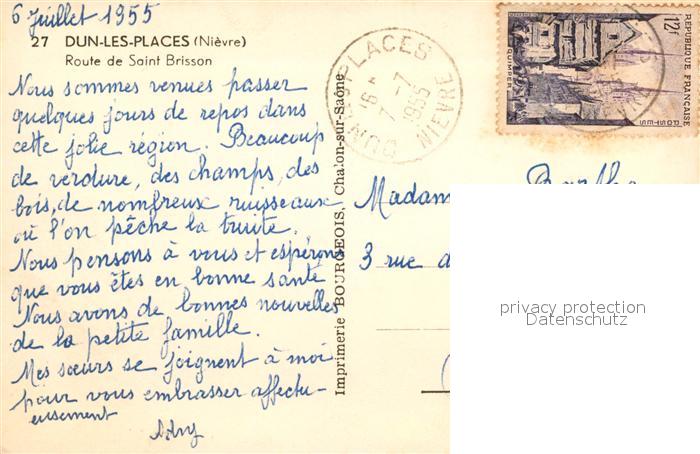 6 Juillet 1955
27 DUN-LES-PLACES (Nièvre)
Route de Saint Brisson
Nous sommes venues passer
quelques jours de repos dans
cette jolie région. Beaucoup
de verdure, des champs, des
bois, de nombreux ruisseaux
où l'on pêche la truite.
Nous pensons à vous et espérons
que vous êtes en bonne santé
Nous avons de bonnes nouvelles
de la petite famille.
Mes sœurs se joignent à moi
pour vous embrasser affectu-
eusement
Imprimerie BOURGEOIS, Chalon-sur-Saône
DUN-LES-PLACES
16 H
7 -7
1955
NIEVRE
REPUBLIQUE FRANÇAISE
12F
POSTES
QUIMPER
Madam
3 rue d
privacy protection
Datenschutz